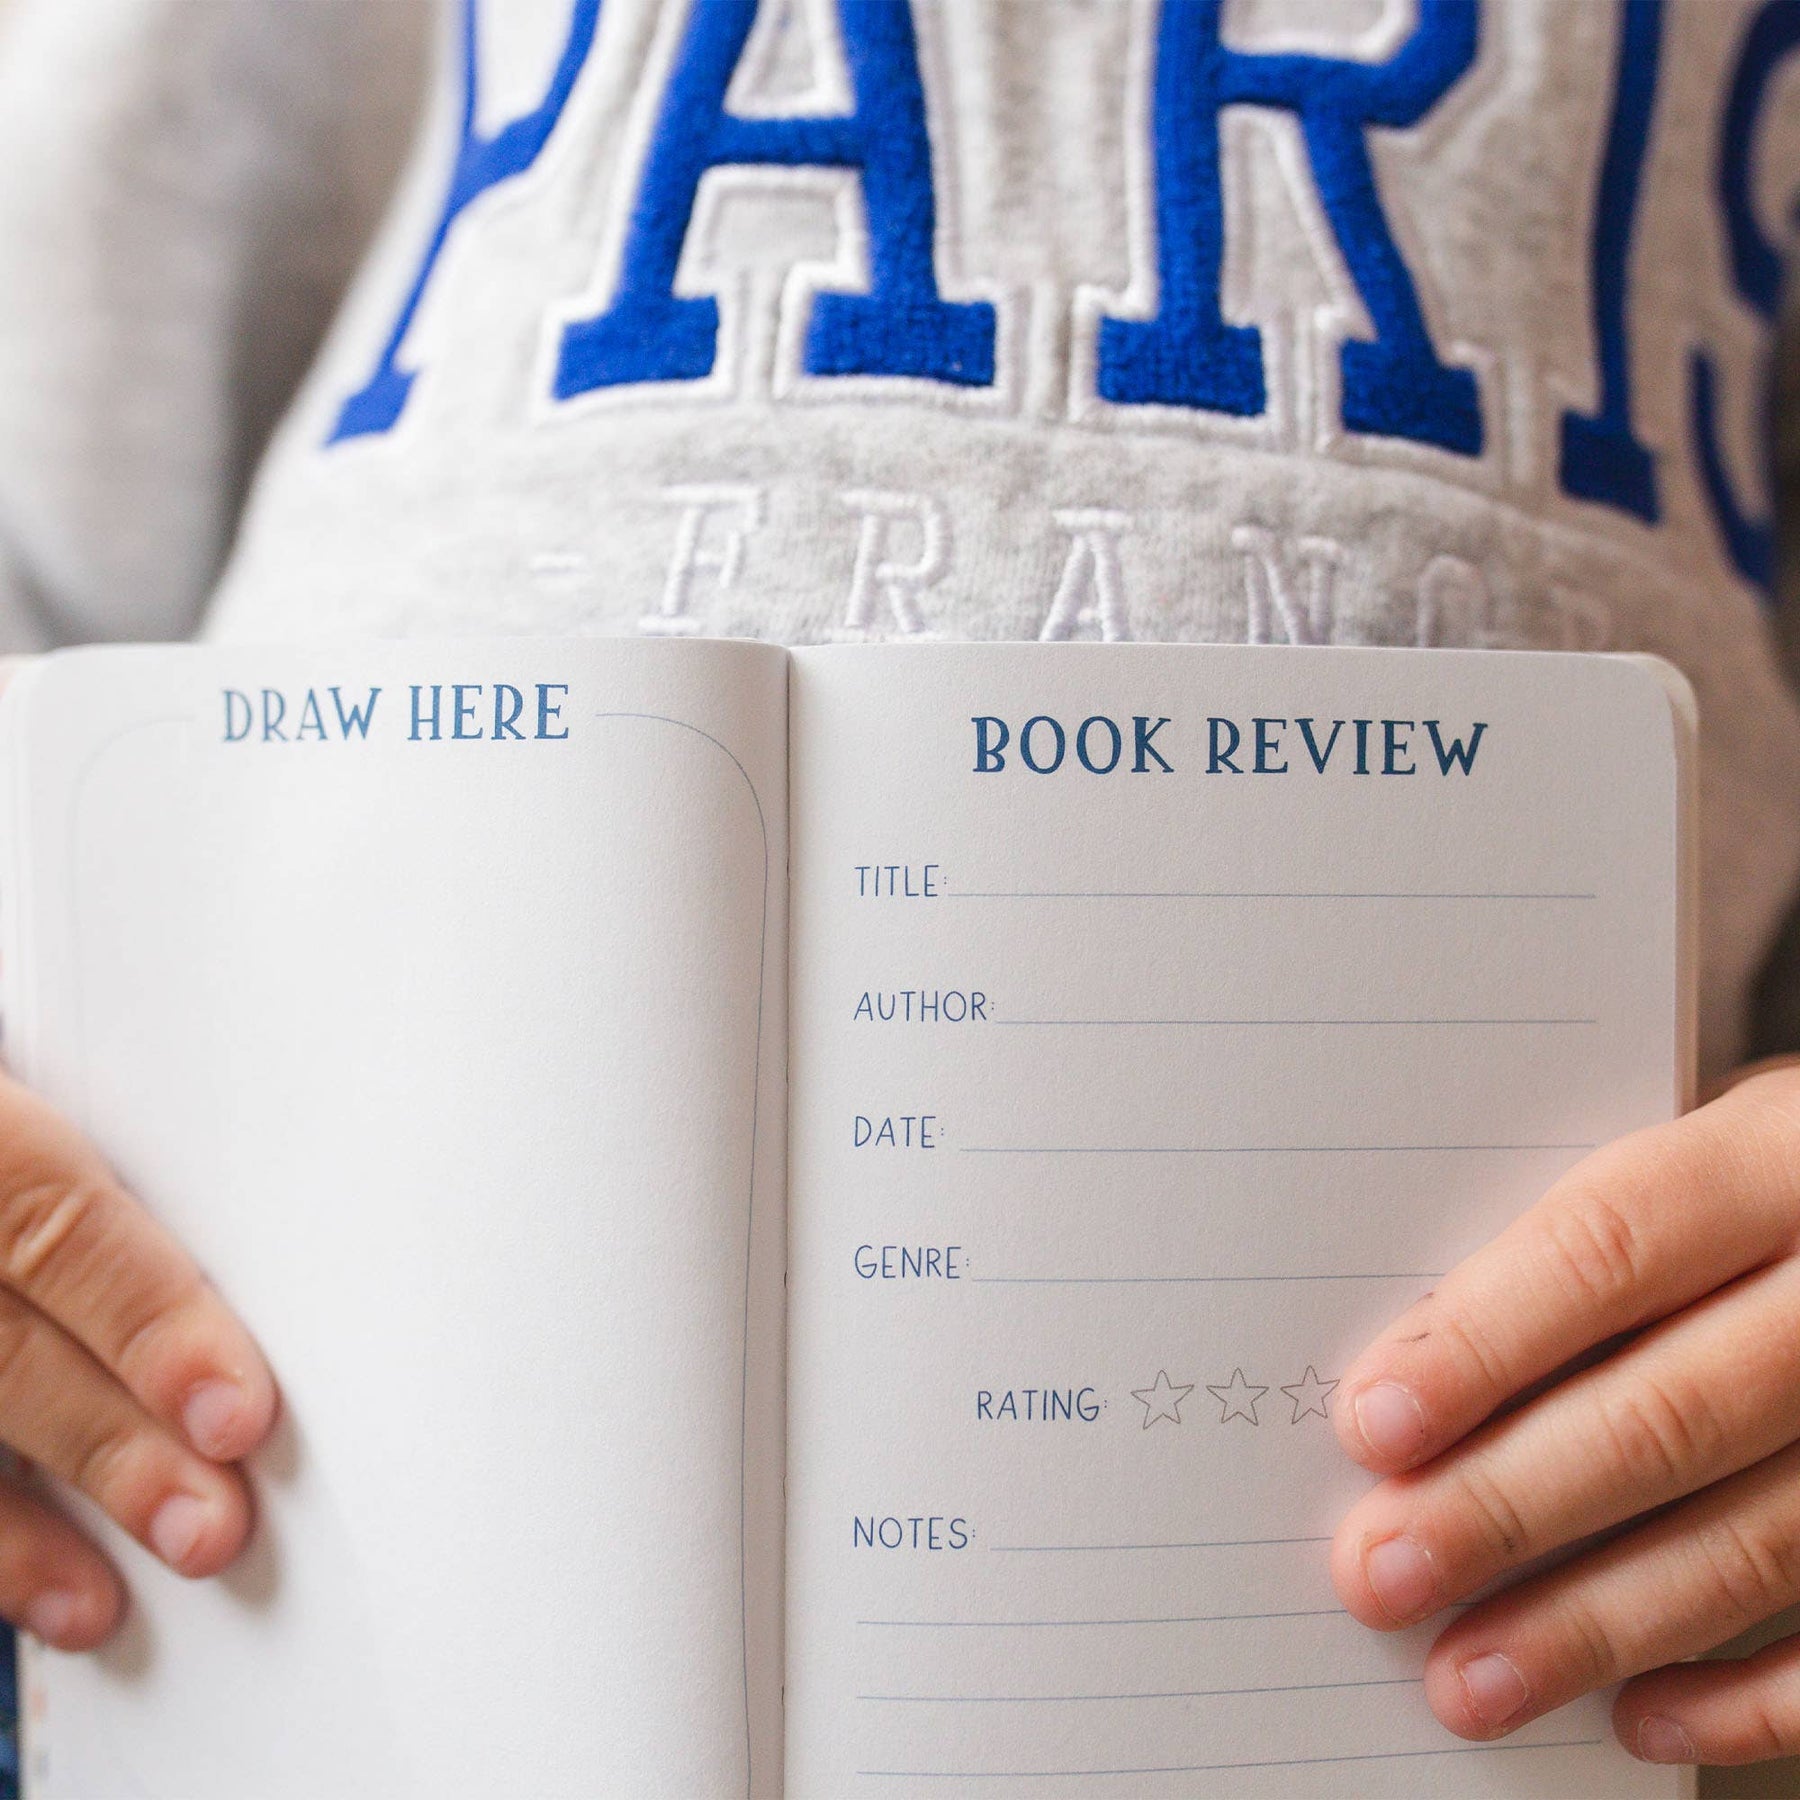 PARIS
-FRANC
DRAW HERE
BOOK REVIEW
TITLE:
AUTHOR:
DATE:
GENRE:
RATING:
NOTES: